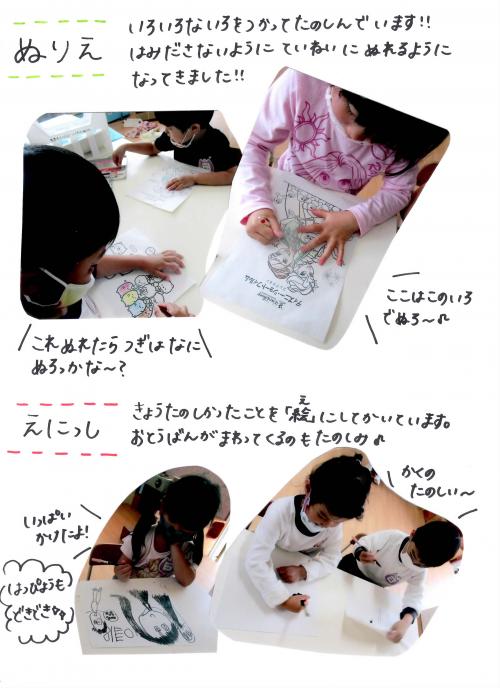 ぬりえ
いろいろないろをつかってたのしんでいます!!
はみださないように ていねいに ぬれるように
なってきました!!
ここはこのいろ
でぬろ〜♪
これぬれたら つぎはなに
ぬろっかな〜?
えにっし
きょうたのしかったことを「絵」にしてかいています。
え
おとうばんがまわってくるのもたのしみ♪
かくの
たのしい〜
いっぱい
かけたよ!
はっぴょうも
できてきた